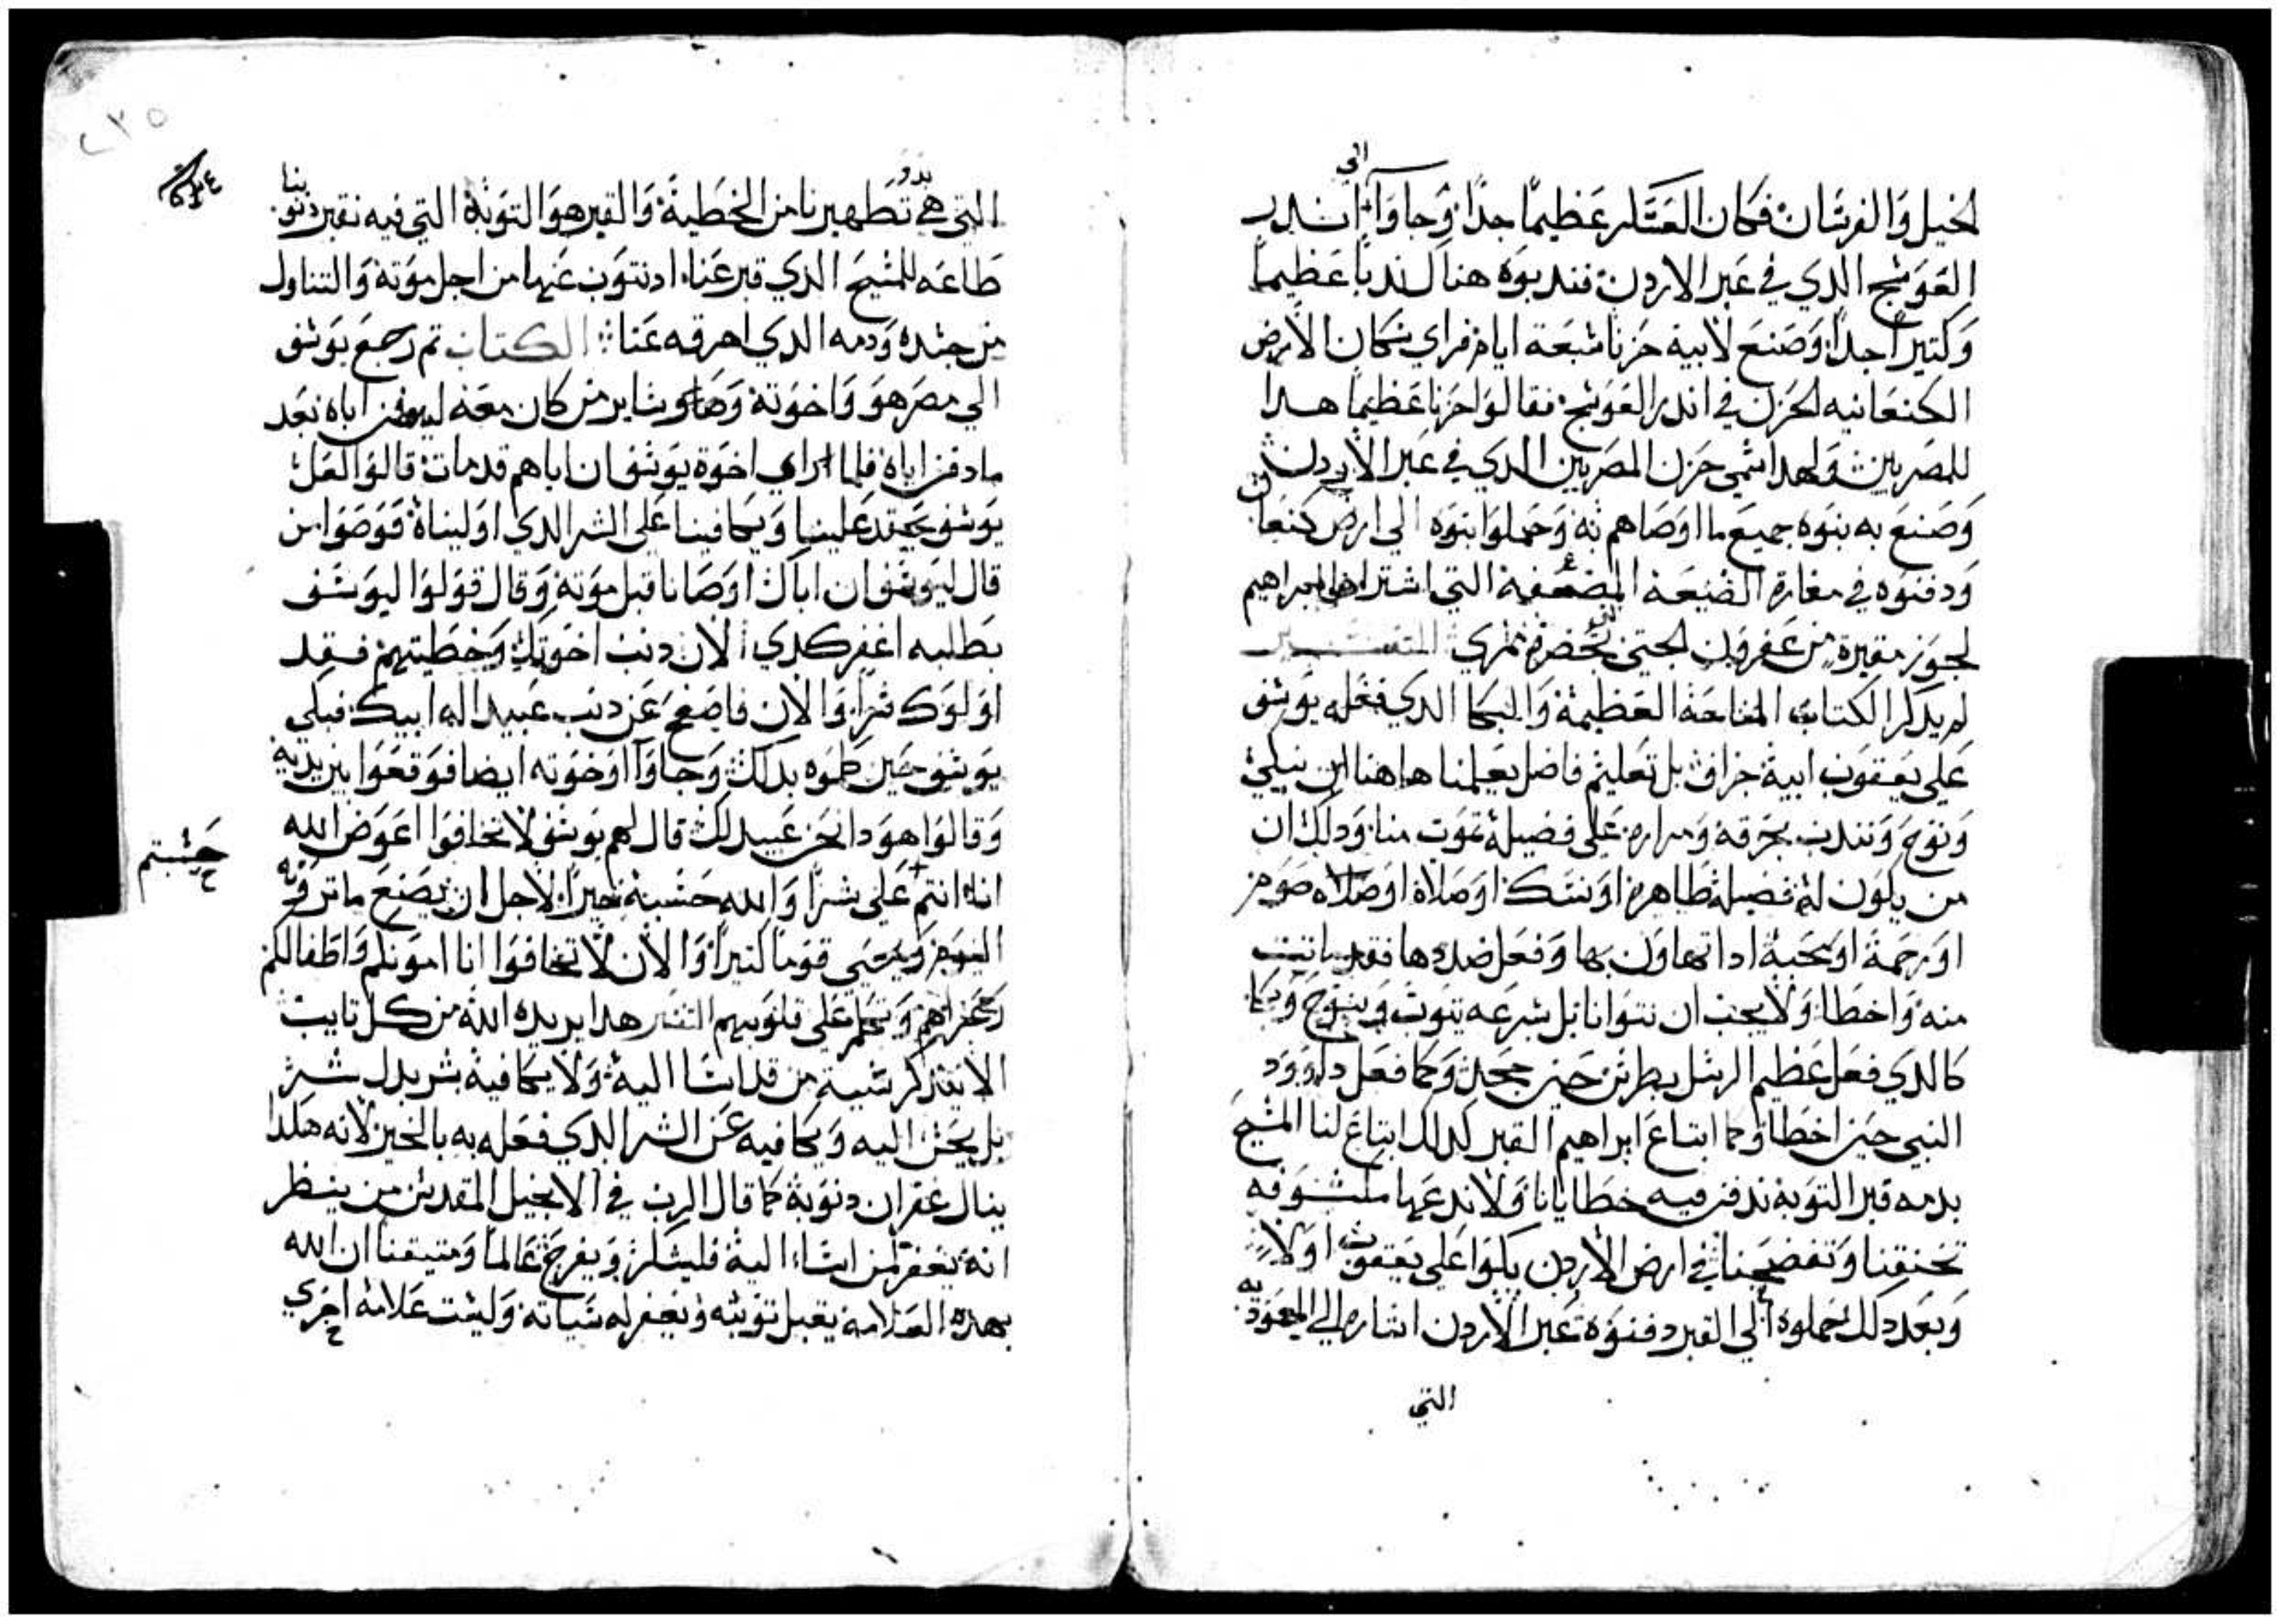 الى
الخيل والفرسان فكان العسكر عظيما جدا وجاوا اندر
العوسج الدي في عبر الاردن فندبوه هناك ندبا عظيما
وكتيرا جدا وصنع لابيه حزنا سبعة ايام فراي سكان الارض
الكنعانيه الحزن في اندر العوسج فقالوا حزنا عظيما هدا
للمصريين ولهدا سمي حزن المصريين الدي في عبر الاردن
وصنع به بنوه جميع ما اوصاهم به وحملوا بنوه الي ارض كنعان
ودفنوه في مغارة الضيعه المضعفه التي اشتراها ابراهيم
لحوز مقبرة من عفرون الحتي بحضرة ممري التفسير
لم يدكر الكتاب المناحة العظيمة والبكا الدي فعله يوسف
علي يعقوب ابيه جزاف بل تعليم فاضل يعلمنا هاهنا ان نبكي
وننوح ونندب بحرقه ومراره علي فضيلة تموت منا ودلك ان
من يكون له فضيلة طاهره او نسك او صلاة او صوم
او رحمة او محبة ادا تهاون بها وفعل ضدها فقد ماتت
منه واخطا ولا يجب ان نتوانا بل بسرعه يتوب وينوح وبكا
كالدي فعل عظيم الرسل بطرس حين جحد وكما فعل داوود
النبي حين اخطا وكما ابتاع ابراهيم القبر كدلك ابتاع لنا المسيح
بدمه قبر التوبة ندفن فيه خطايانا ولا ندعها مكشوفه
تخنقنا وتفضحنا في ارض الاردن بكوا علي يعقوب اولا
وبعد دلك حملوه الي القبر دفنوه عبر الاردن اشاره الي المعموديه
التي
٢٣٥
التي هي تطهيرنا من الخطية والقبر هو التوبة التي فيه نقبر دنوبنا
طاعه للمسيح الدي قبر عنا اد نتوب عنها من اجل موته والتناول
من جسده ودمه الدي اهرقه عنا الكتاب تم رجع يوسف
الي مصر هو واخوته وساير من كان معه ليدفن اباه بعد
ما دفن اباه فلما راي اخوة يوسف ان اباهم قد مات قالوا لعل
يوسف يحقد علينا ويكافينا علي الشر الدي اوليناه فوصوا من
قال ليوسف ان اباك اوصانا قبل موته وقال قولوا ليوسف
بطلبه اغفر كدي الان دنب اخوتك وخطيتهم فقد
اولوك شرا والان فاصفح عن دنب عبيد اله ابيك فبكي
يوسف حين كلموه بدلك وجاوا اوخوته ايضا فوقعوا بين يديه
وقالوا هودا نحن عبيد لك قال لهم يوسف لا تخافوا اعوض الله
انا انتم علي شرا والله حسبه خيرا لاجل ان يصنع ما ترونه
حسبتم
اليوم ويحيي قوما كتيرا والان لا تخافوا انا امونكم واطفالكم
وعزاهم وتكلم علي قلوبهم التفسير هدا يريده الله من كل تايب
الا يتدكر سية من قد اسا اليه ولا يكافيه بشر بدل شر
بل يحسن اليه ويكافيه عن الشر الدي فعله به بالخير لانه هكدا
ينال غفران دنوبة كما قال الرب في الانجيل المقدس من ينظر
انه يغفر لمن اساء اليه فليشكر ويفرح عالما ومتيقنا ان الله
بهده العلامه يقبل توبته ويغفر له سياته وليست علامه اخري